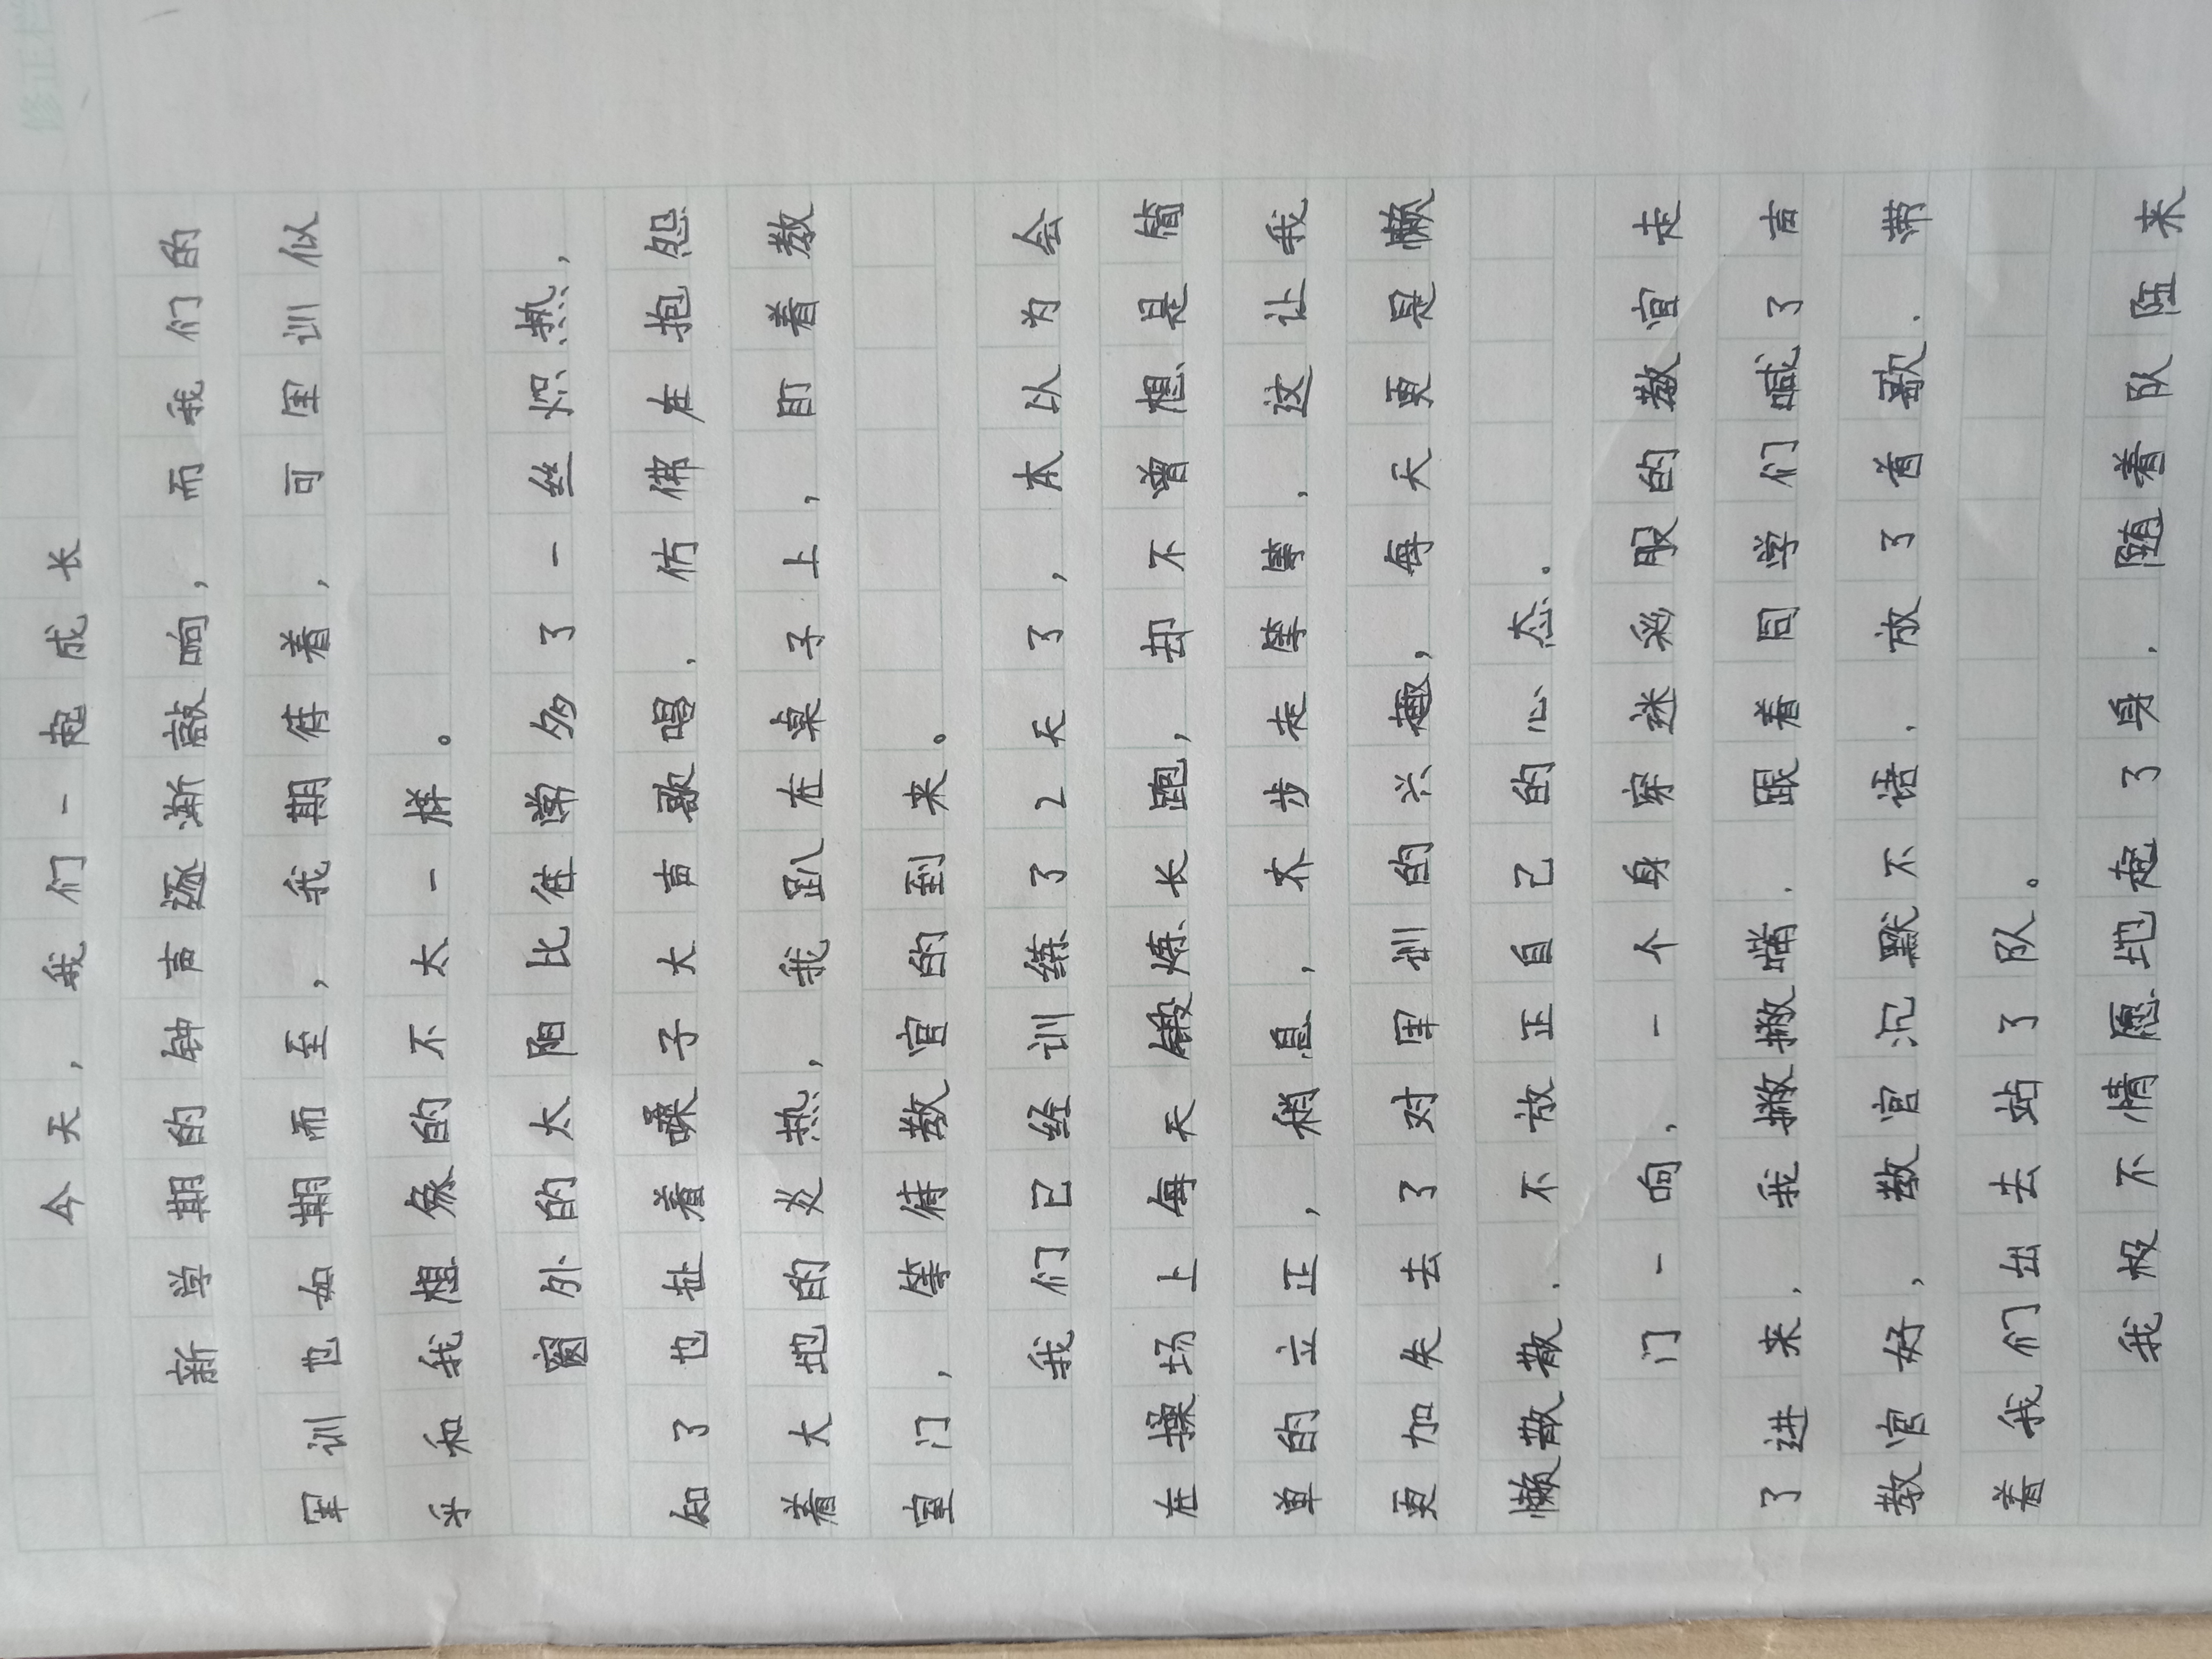 今天,我们一起成长
新学期的钟声逐渐敲响,而我们的
军训也如期而至,我期待着,可军训似
乎和我想象的不太一样。
窗外的太阳比往常多了一丝炽热,
知了也扯着嗓子大声歌唱.仿佛在抱怨
着大地的炎热,我趴在桌子上,盯着教
室门,等待教官的到来。
我们已经训练了2天了,本以为会
在操场上每天锻炼长跑,却不曾想是简
单的立正,稍息,齐步走等等,这让我
更加失去了对军训的兴趣,每天更是懒
懒散散.不放正自己的心态.
门一响,一个身穿迷彩服的教官走
了进来.我撇撇嘴.跟着同学们喊了声
教官好,教官沉默不语.放了首歌.带
着我们出去站了队。
我极不情愿地起了身.随着队伍来